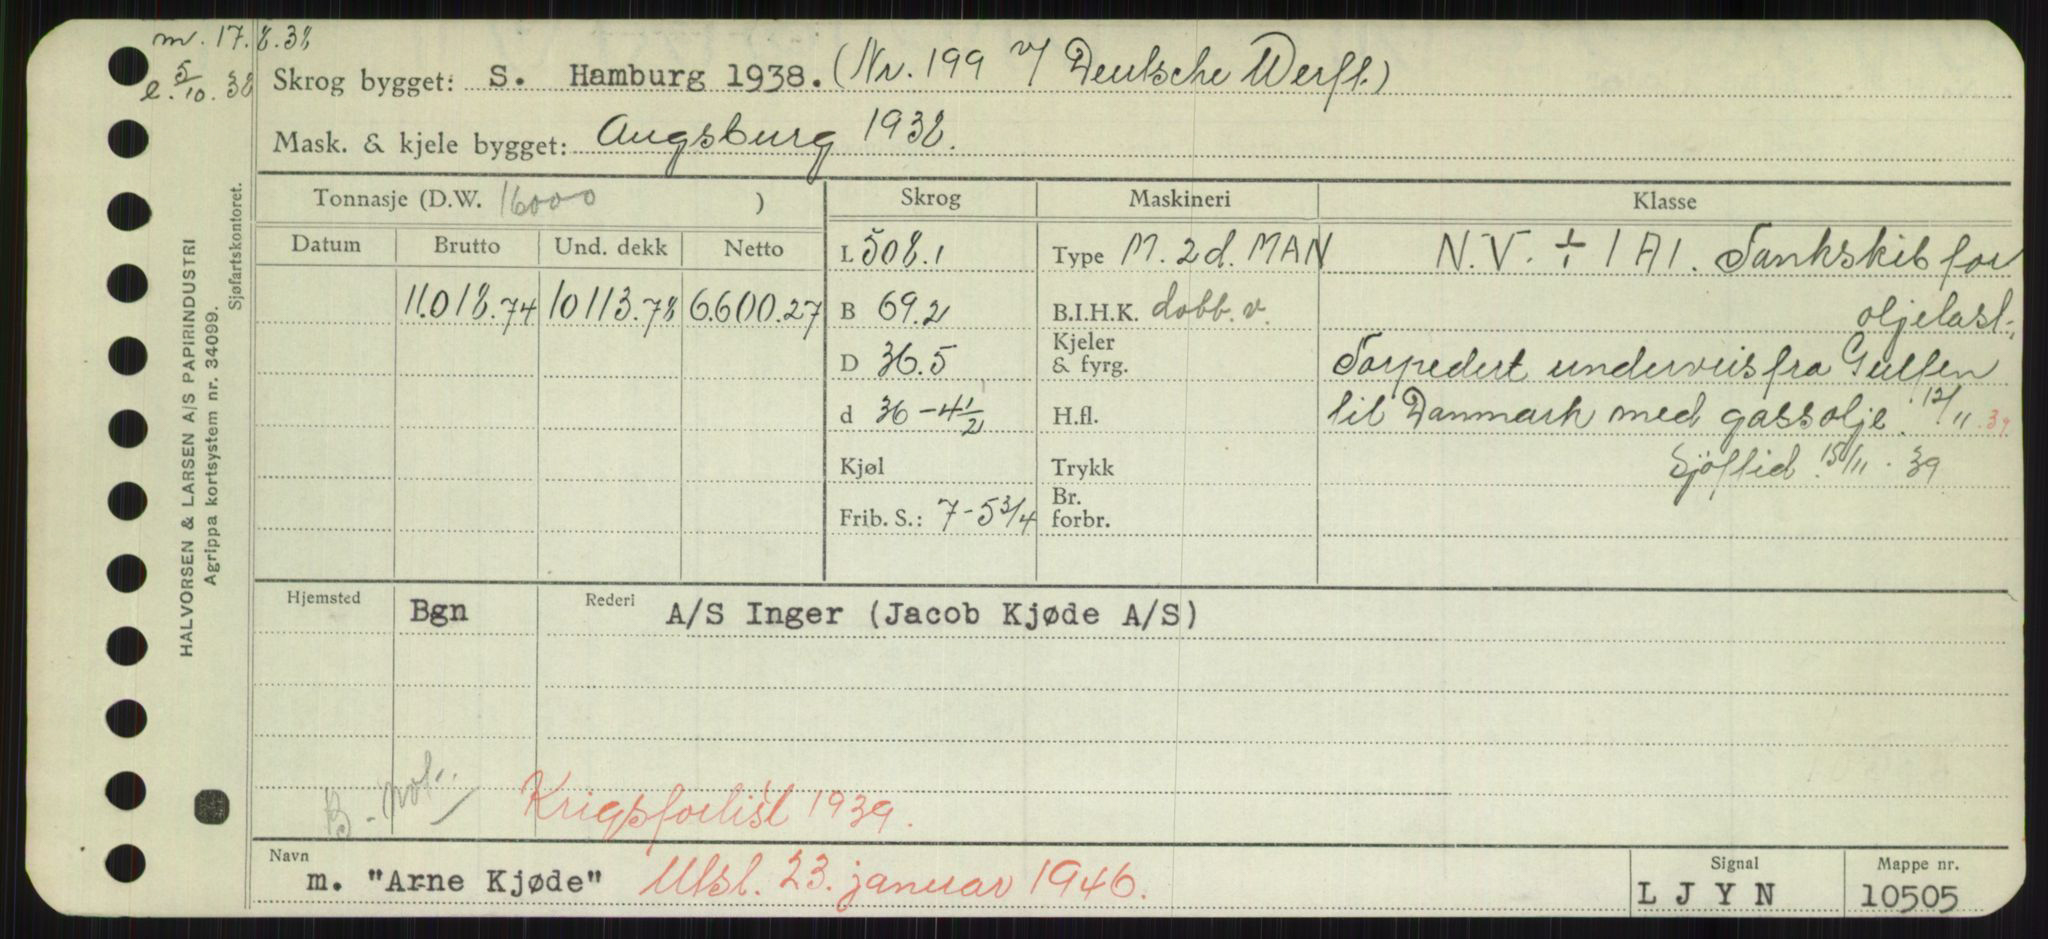 m. 17.8.38
e. 5/10. 38
Skrog bygget: S. Hamburg 1938. (Nr. 199 v/ Deutsche Werft.)
Mask. & kjele bygget: Augsburg 1938.
Tonnasje (D.W. 16000 ) Skrog Maskineri Klasse
Datum Brutto Und. dekk Netto L 508.1 Type M. 2d. MAN N.V. ÷ 1 A1. Tankskib for
11.018.74 10113.78 6.600.27 B 69.2 B.I.H.K. dobb. v. oljelast.
D 36.5 Kjeler & fyrg. Torpedert underveis fra Gulfen
d 36-4 1/2 H.fl. til Danmark med gassolje. 12/11. 39
Kjøl Trykk Sjøftid. 15/11. 39
Frib. S.: 7-5 3/4 Br. forbr.
Hjemsted Bgn Rederi A/S Inger (Jacob Kjøde A/S)
B. not.
Krigsforlist 1939.
Navn m. "Arne Kjøde" Utsl. 23. januar 1946. Signal L J Y N Mappe nr. 10505
HALVORSEN & LARSEN A/S PAPIRINDUSTRI
Agrippa kortsystem nr. 34099.
Sjøfartskontoret.